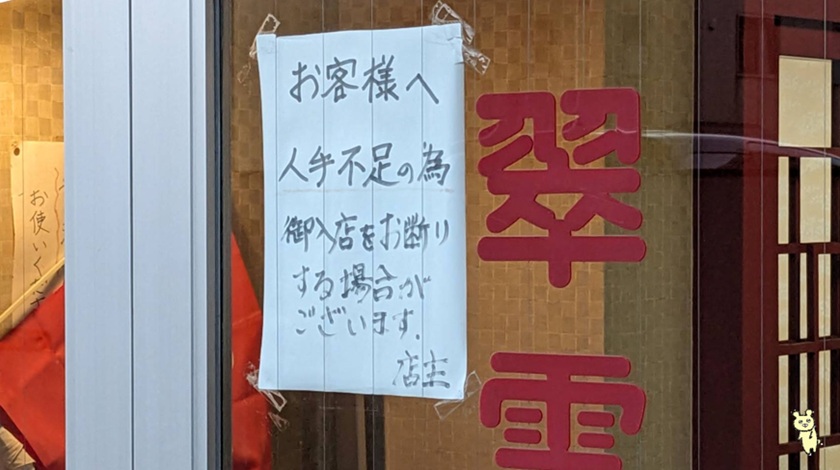 お客様へ
人手不足の為
御入店をお断り
する場合が
ございます.
店主
翠
雲
お使いくだ